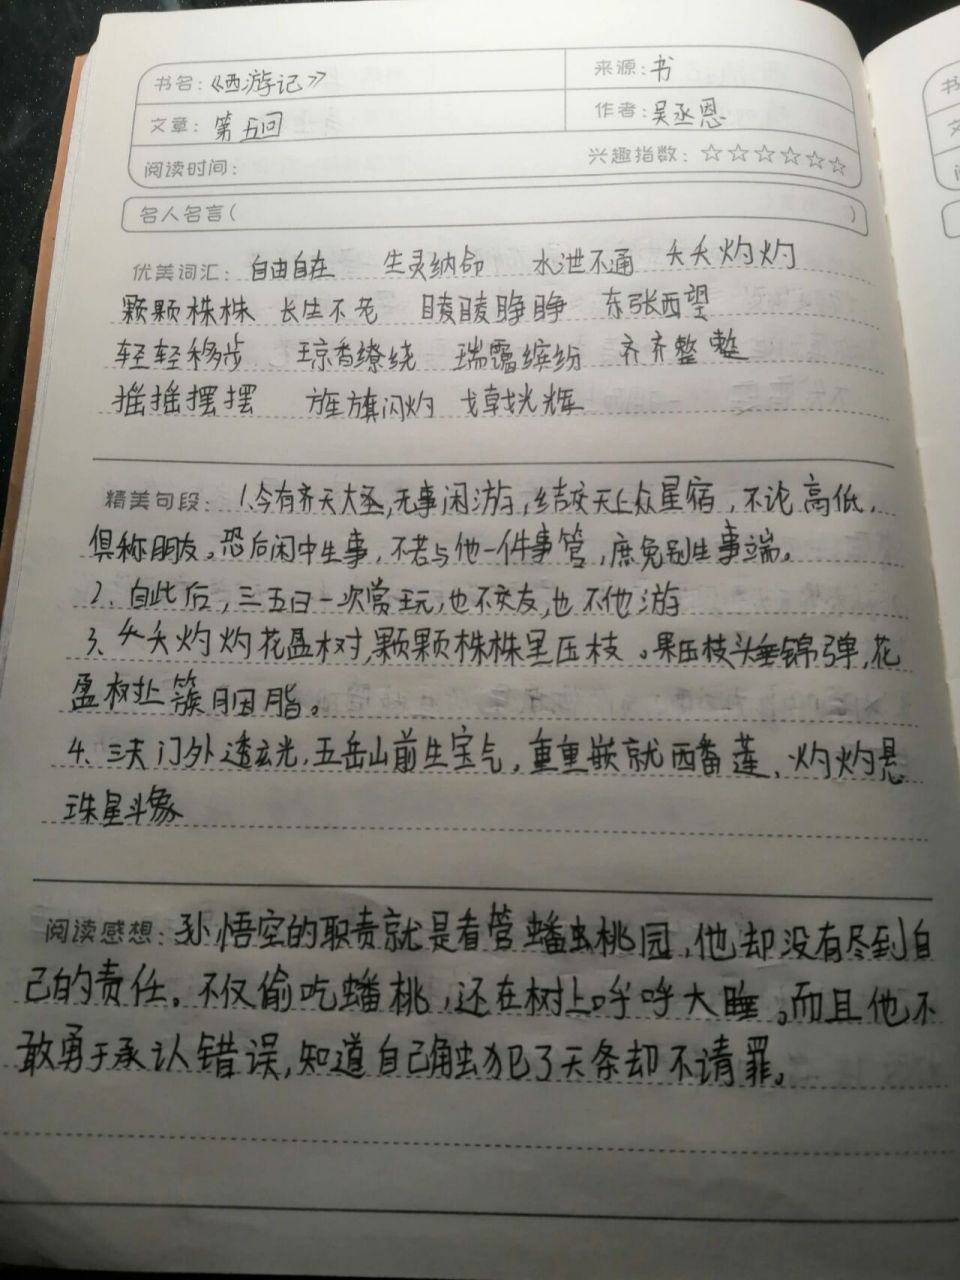 书名：《西游记》 来源：书
文章：第五回 作者：吴丞恩
阅读时间： 兴趣指数：☆☆☆☆☆☆
名人名言（ ）
优美词汇：自由自在 生灵纳命 水泄不通 夭夭灼灼
颗颗株株 长生不老 睖睖睁睁 东张西望
轻轻移步 琼香缭绕 瑞霭缤纷 齐齐整整
摇摇摆摆 旌旗闪灼 戈戟光辉
精美句段：1.今有齐天大圣，无事闲游，结交天上众星宿，不论高低，
俱称朋友。恐后闲中生事，不若与他一件事管，庶免别生事端。
2、自此后，三五日一次赏玩，也不交友，也不他游
3、夭夭灼灼花盈树，颗颗株株果压枝。果压枝头垂锦弹，花
盈树上簇胭脂。
4、三天门外透玄光，五岳山前生宝气，重重嵌就西番莲、灼灼悬
珠星斗象
阅读感想：孙悟空的职责就是看管蟠桃园，他却没有尽到自
己的责任。不仅偷吃蟠桃，还在树上呼呼大睡。而且他不
敢勇于承认错误，知道自己触犯了天条却不请罪。